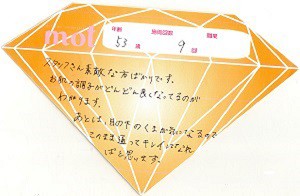 mol
年齢 施術回数 職業
53 歳 9 回
スタッフさん素敵な方ばかりです。
お肌の調子がどんどん良くなってるのが
わかります。
あとは、目の下のくまが気になるので
このまま通ってキレイになれ
ばと思います。